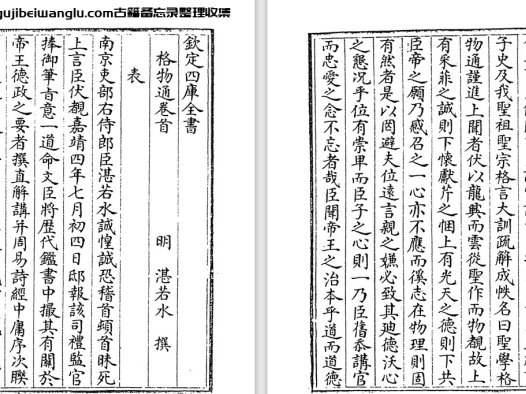 gujibeiwanglu.com古籍备忘录整理收集
欽定四庫全書
格物通卷首
明 湛若水 撰
表
南京吏部右侍郎臣湛若水誠惶誠恐稽首頓首昧死
上言臣伏覩嘉靖四年七月初四日邸報該司禮監官
捧御筆㫖意一道命文臣將歴代鑑書中撮其有關於
帝王德政之要者撰直解講并周易詩經中庸序次聯
子史及我聖祖聖宗格言大訓疏解成帙名曰聖學格
物通謹進上聞者伏以龍興而雲從聖作而物覩故上
有采菲之誠則下懷獻芹之悃上有光天之德則下共
臣帝之願乃感召之一心亦不應而徯志在物理則固
有然者是以罔避夫位遠言親之嫌必致其廸德沃心
之懇況乎位有崇卑而臣子之心則一乃臣舊忝講官
而忠愛之念不忘者哉臣聞帝王之治本乎道而道德